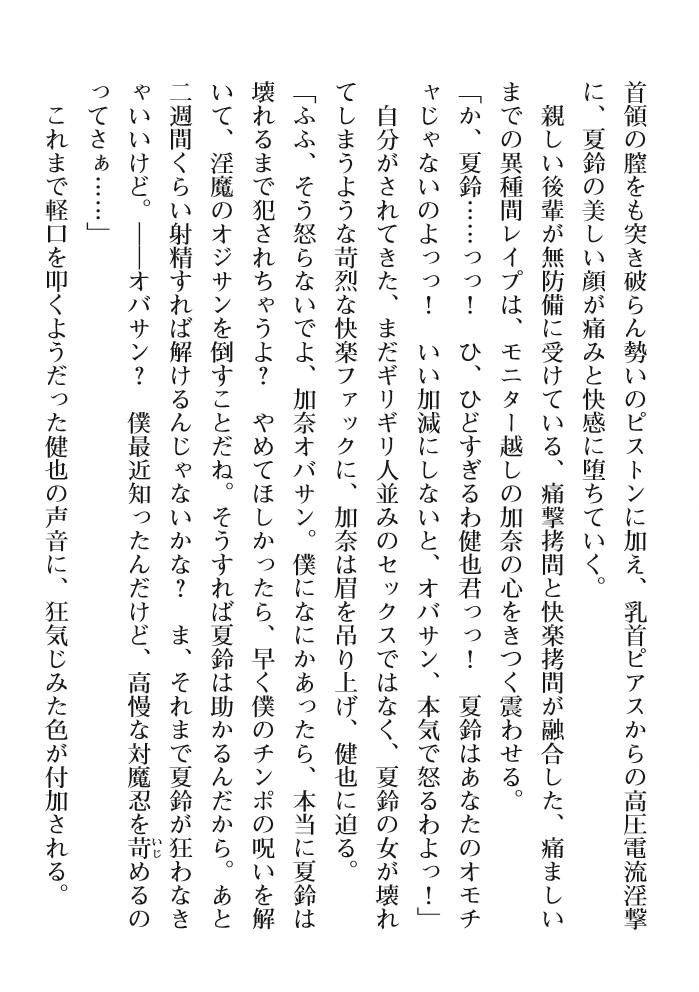 首領の膣をも突き破らん勢いのピストンに加え、乳首ピアスからの高圧電流淫撃
に、夏鈴の美しい顔が痛みと快感に堕ちていく。
親しい後輩が無防備に受けている、痛撃拷問と快楽拷問が融合した、痛ましい
までの異種間レイプは、モニター越しの加奈の心をきつく震わせる。
「か、夏鈴……っっ！　ひ、ひどすぎるわ健也君っっ！　夏鈴はあなたのオモチ
ャじゃないのよっっ！　いい加減にしないと、オバサン、本気で怒るわよっ！」
自分がされてきた、まだギリギリ人並みのセックスではなく、夏鈴の女が壊れ
てしまうような苛烈な快楽ファックに、加奈は眉を吊り上げ、健也に迫る。
「ふふ、そう怒らないでよ、加奈オバサン。僕になにかあったら、本当に夏鈴は
壊れるまで犯されちゃうよ？　やめてほしかったら、早く僕のチンポの呪いを解
いて、淫魔のオジサンを倒すことだね。そうすれば夏鈴は助かるんだから。あと
二週間くらい射精すれば解けるんじゃないかな？　ま、それまで夏鈴が狂わなき
ゃいいけど。――オバサン？　僕最近知ったんだけど、高慢な対魔忍を苛めるの
ってさぁ……」
これまで軽口を叩くようだった健也の声音に、狂気じみた色が付加される。